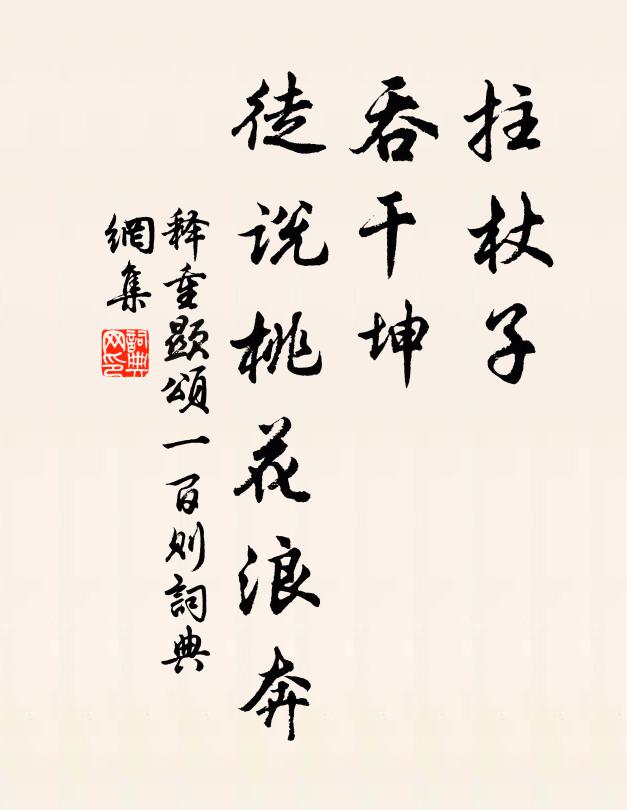 拄杖子
吞干坤
徒说桃花浪奔
释重顕頌一百则詞典
網集
詞典
网印